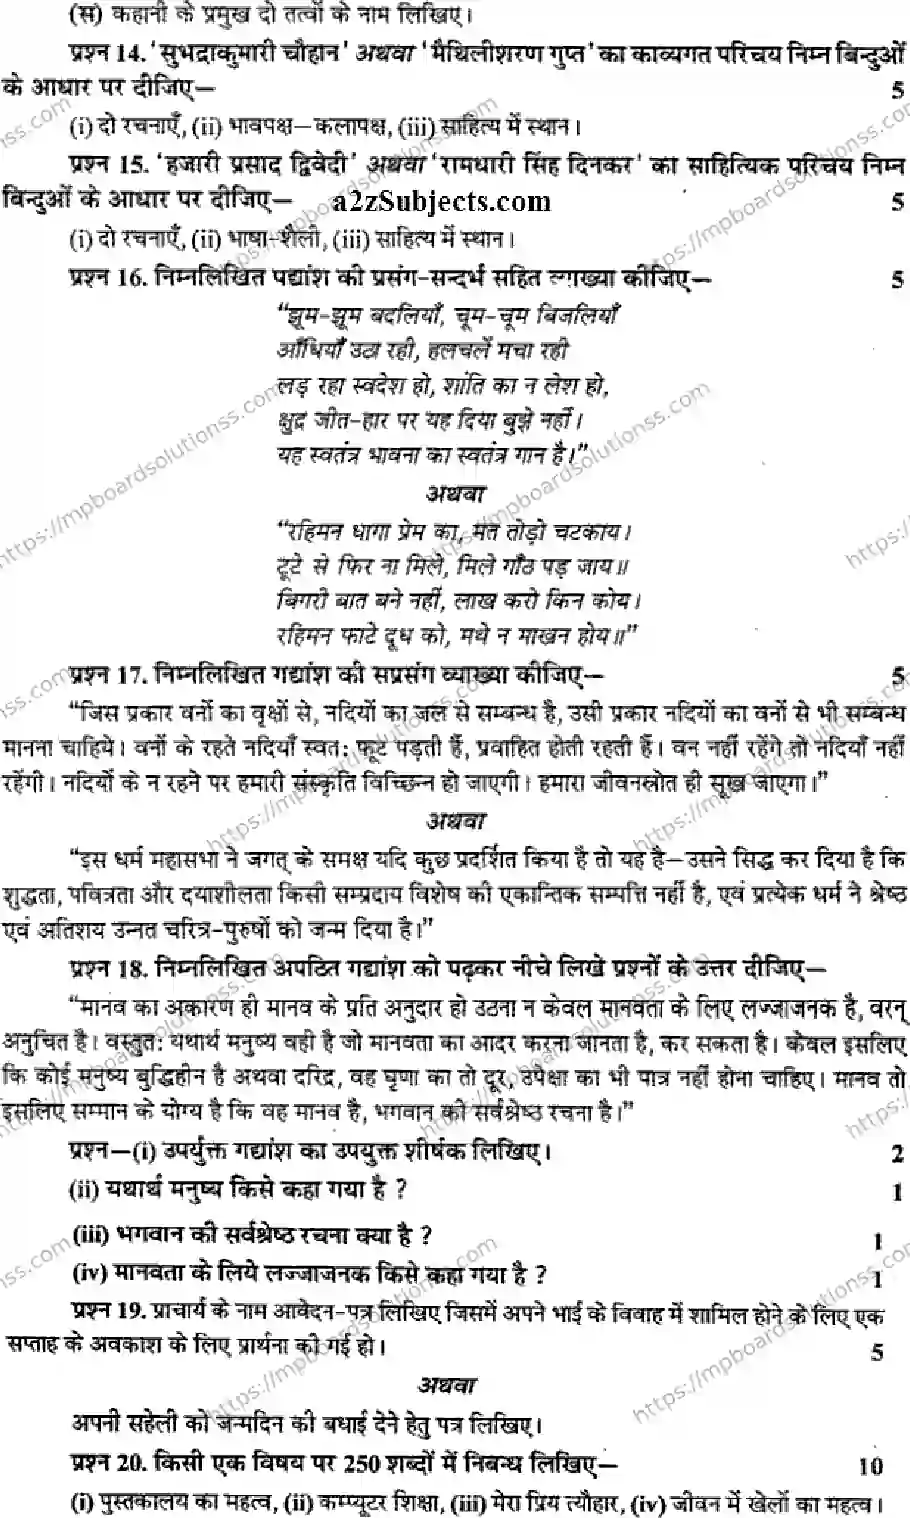 (स) कहानी के प्रमुख दो तत्वों के नाम लिखिए।
प्रश्न 14. 'सुभद्राकुमारी चौहान' अथवा 'मैथिलीशरण गुप्त' का काव्यगत परिचय निम्न बिन्दुओं
के आधार पर दीजिए— 5
(i) दो रचनाएँ, (ii) भावपक्ष—कलापक्ष, (iii) साहित्य में स्थान।
प्रश्न 15. 'हजारी प्रसाद द्विवेदी' अथवा 'रामधारी सिंह दिनकर' का साहित्यिक परिचय निम्न
बिन्दुओं के आधार पर दीजिए— a2zSubjects.com 5
(i) दो रचनाएँ, (ii) भाषा-शैली, (iii) साहित्य में स्थान।
प्रश्न 16. निम्नलिखित पद्यांश की प्रसंग-सन्दर्भ सहित व्याख्या कीजिए— 5
"झूम-झूम बदलियाँ, चूम-चूम बिजलियाँ
आँधियाँ उठा रही, हलचलें मचा रही
लड़ रहा स्वदेश हो, शांति का न लेश हो,
क्षुद्र जीत-हार पर यह दिया बुझे नहीं।
यह स्वतंत्र भावना का स्वतंत्र गान है।"
अथवा
"रहिमन धागा प्रेम का, मत तोड़ो चटकाय।
टूटे से फिर ना मिले, मिले गाँठ पड़ जाय॥
बिगरी बात बने नहीं, लाख करो किन कोय।
रहिमन फाटे दूध को, मथे न माखन होय॥"
प्रश्न 17. निम्नलिखित गद्यांश की सप्रसंग व्याख्या कीजिए— 5
"जिस प्रकार वनों का वृक्षों से, नदियों का जल से सम्बन्ध है, उसी प्रकार नदियों का वनों से भी सम्बन्ध
मानना चाहिये। वनों के रहते नदियाँ स्वत: फूट पड़ती हैं, प्रवाहित होती रहती हैं। वन नहीं रहेंगे तो नदियाँ नहीं
रहेंगी। नदियों के न रहने पर हमारी संस्कृति विच्छिन्न हो जाएगी। हमारा जीवनस्रोत ही सूख जाएगा।"
अथवा
"इस धर्म महासभा ने जगत् के समक्ष यदि कुछ प्रदर्शित किया है तो यह है—उसने सिद्ध कर दिया है कि
शुद्धता, पवित्रता और दयाशीलता किसी सम्प्रदाय विशेष की एकान्तिक सम्पत्ति नहीं है, एवं प्रत्येक धर्म ने श्रेष्ठ
एवं अतिशय उन्नत चरित्र-पुरुषों को जन्म दिया है।"
प्रश्न 18. निम्नलिखित अपठित गद्यांश को पढ़कर नीचे लिखे प्रश्नों के उत्तर दीजिए—
"मानव का अकारण ही मानव के प्रति अनुदार हो उठना न केवल मानवता के लिए लज्जाजनक है, वरन्
अनुचित है। वस्तुत: यथार्थ मनुष्य वही है जो मानवता का आदर करना जानता है, कर सकता है। केवल इसलिए
कि कोई मनुष्य बुद्धिहीन है अथवा दरिद्र, वह घृणा का तो दूर, उपेक्षा का भी पात्र नहीं होना चाहिए। मानव तो
इसलिए सम्मान के योग्य है कि वह मानव है, भगवान की सर्वश्रेष्ठ रचना है।"
प्रश्न—(i) उपर्युक्त गद्यांश का उपयुक्त शीर्षक लिखिए। 2
(ii) यथार्थ मनुष्य किसे कहा गया है ? 1
(iii) भगवान की सर्वश्रेष्ठ रचना क्या है ? 1
(iv) मानवता के लिये लज्जाजनक किसे कहा गया है ? 1
प्रश्न 19. प्राचार्य के नाम आवेदन-पत्र लिखिए जिसमें अपने भाई के विवाह में शामिल होने के लिए एक
सप्ताह के अवकाश के लिए प्रार्थना की गई हो। 5
अथवा
अपनी सहेली को जन्मदिन की बधाई देने हेतु पत्र लिखिए।
प्रश्न 20. किसी एक विषय पर 250 शब्दों में निबन्ध लिखिए— 10
(i) पुस्तकालय का महत्व, (ii) कम्प्यूटर शिक्षा, (iii) मेरा प्रिय त्यौहार, (iv) जीवन में खेलों का महत्व।
https://mpboardsolutionss.com